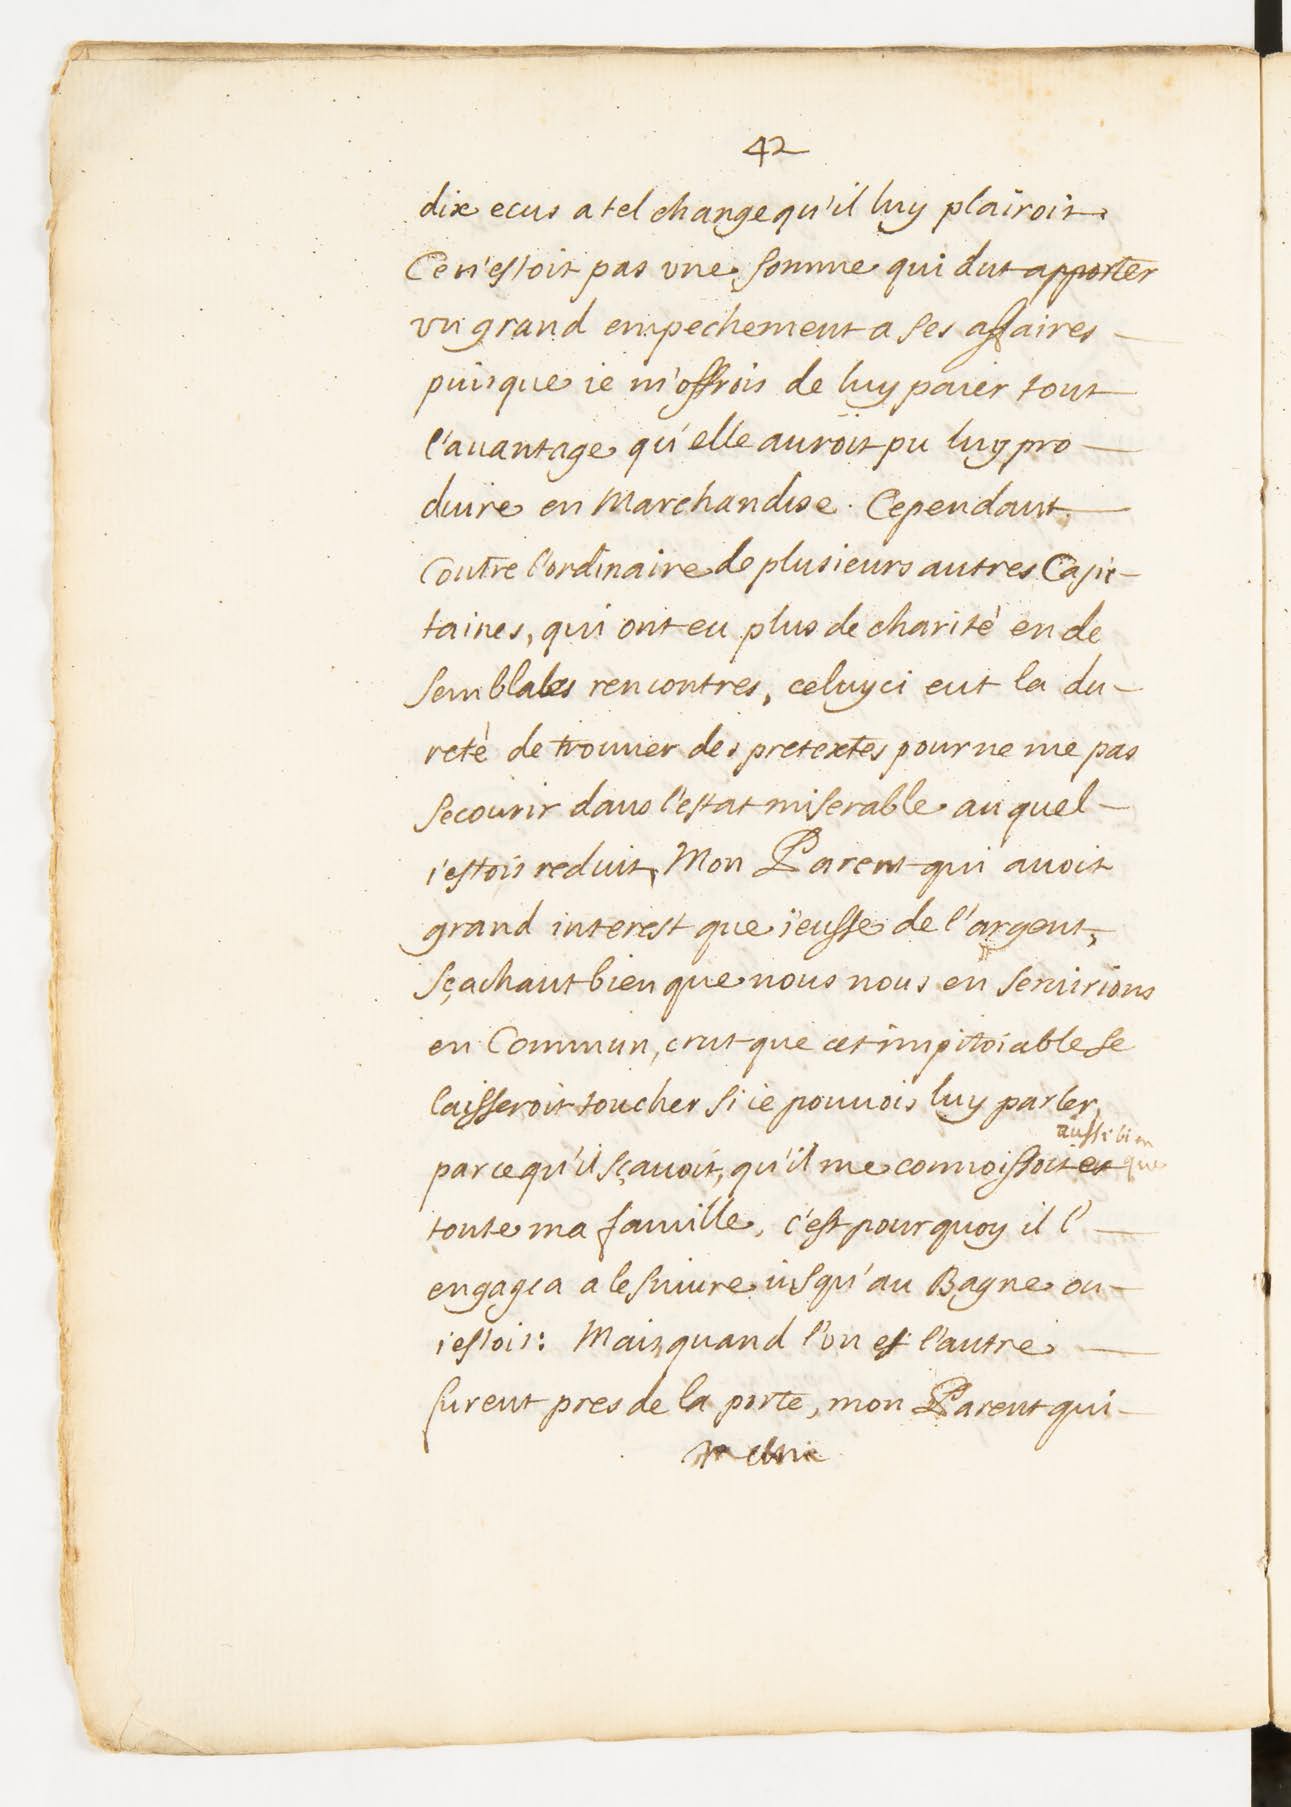 42
dix ecus a tel change qu'il luy plairoit.
Ce n'estoit pas vne somme qui dut apporter
vn grand empechement a ses affaires —
puisque ie m'offrois de luy paier tout
l'auantage qu'elle auroit pu luy pro —
duire en Marchandise. Cependant
Contre l'ordinaire de plusieurs autres Capi-
taines, qui ont eu plus de charité en de
semblables rencontres, celuyci eut la du-
reté de trouuer des pretextes pour ne me pas
secourir dans l'estat miserable auquel —
i'estois reduit, Mon Parent qui auoit
grand interest que i'eusse de l'argent,
sçachant bien que nous nous en seruirions
en Commun, crut que cet impitoiable se
laisseroit toucher si ie pouuois luy parler,
aussi bien que
parce qu'il sçauoit, qu'il me connoissoit et
toute ma famille, c'est pourquoy il l' —
engagea a le suiure iusqu'au Bagne ou —
i'estois: Mais quand l'un et l'autre —
furent pres de la porte, mon Parent qui —